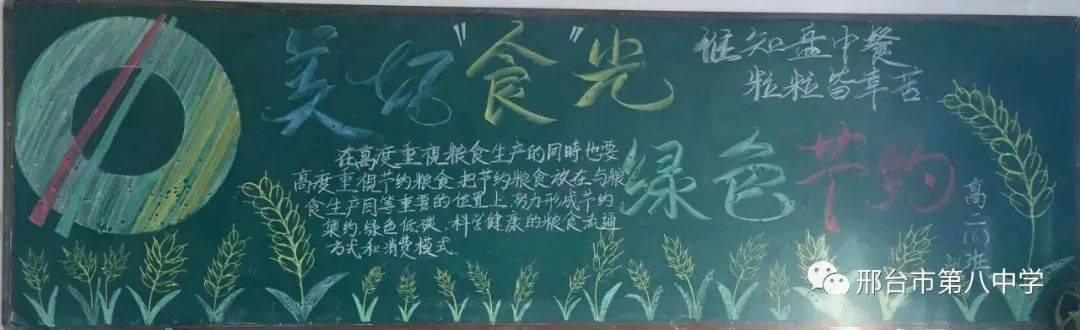 美好“食”光
谁知盘中餐
粒粒皆辛苦
在高度重视粮食生产的同时,也要
高度重视节约粮食,把节约粮食放在与粮
食生产同等重要的位置上,努力形成节约
集约,绿色低碳,科学健康的粮食流通
方式和消费模式
绿色节约
高二(6)班
邢台市第八中学